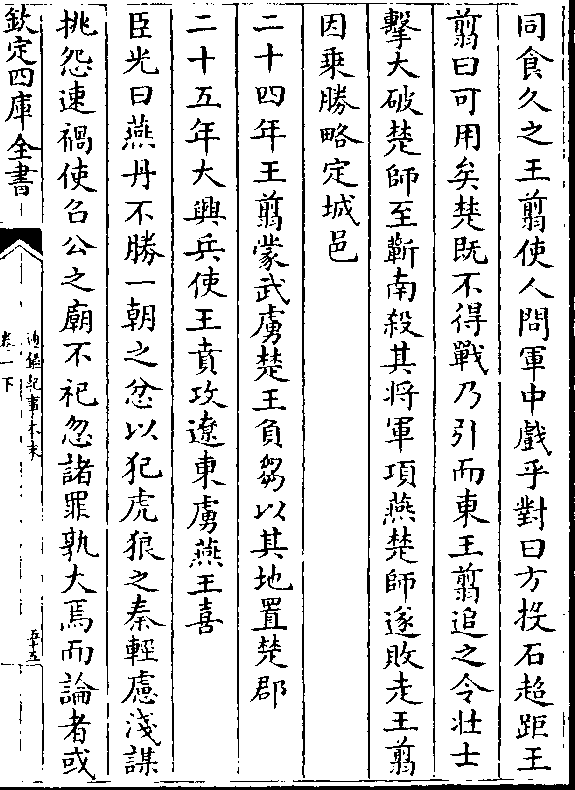 同食久之王翦使人問軍中戲乎對曰方投石超距王
翦曰可用矣楚既不得戰乃引而東王翦追之令壯士
擊大破楚師至蘄南殺其将軍項燕楚師遂敗走王翦
因乗勝略定城邑
二十四年王翦蒙武虜楚王負芻以其地置楚郡
二十五年大興兵使王賁攻遼東虜燕王喜
臣光曰燕丹不勝一朝之忿以犯虎狼之秦輕慮淺謀
挑怨速禍使召公之廟不祀忽諸罪孰大焉而論者或
欽定四庫全書
通鑑紀事本末
卷一下
五十五